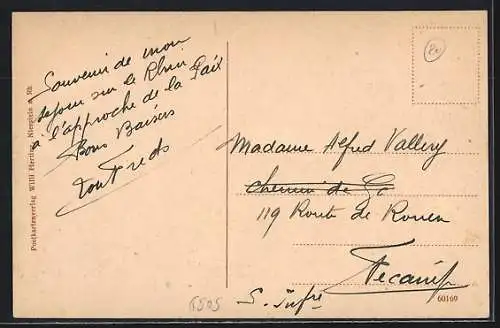 Souvenir de mon
séjour sur le Rhin
à l'approche de la Paix
Bons Baisers
ton Fredo
Postkartenverlag Willi Nierstein a. Rh.
Madame Alfred Vallery
Chemin de
119 Route de Rouen
Fécamp
S. Infre
60160